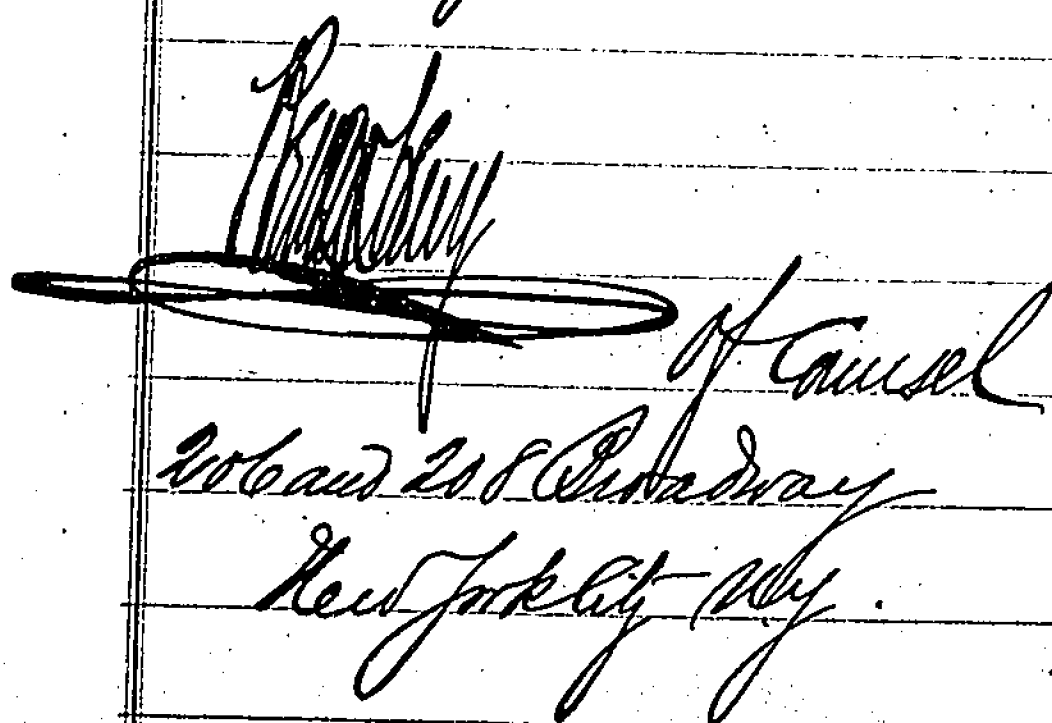 of Counsel
206 and 208 Broadway
New York City NY.